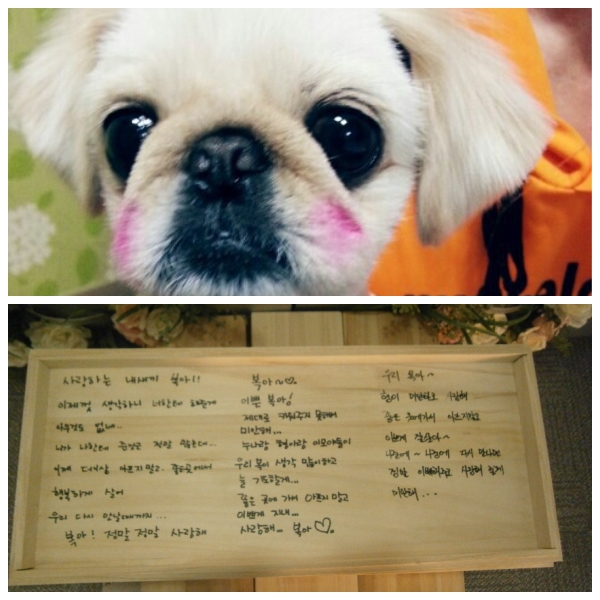 사랑하는 내새끼 복아!!
이제껏 생각하니 너한테 해준게
아무것도 없네..
니가 나한테 준것은 정말 많은데...
이제 더이상 아프지 말고.. 좋은곳에서
행복하게 살어
우리 다시 만날때까지...
복아! 정말 정말 사랑해
복아~♡
이쁜 복아!
제대로 키워주지 못해
미안해...
누나랑 형아랑 이모야들이
우리 복이 생각 많이하고
늘 기도할게...
좋은 곳에 가서 아프지 말고
이쁘게 지내...
사랑해... 복아♡.
우리 복아~
형이 미안하고
좋은 아프지말고
이쁘게 잘살아~
나중에~ 나중에 다시 만나면
정말 사랑해 줄게
미안해...